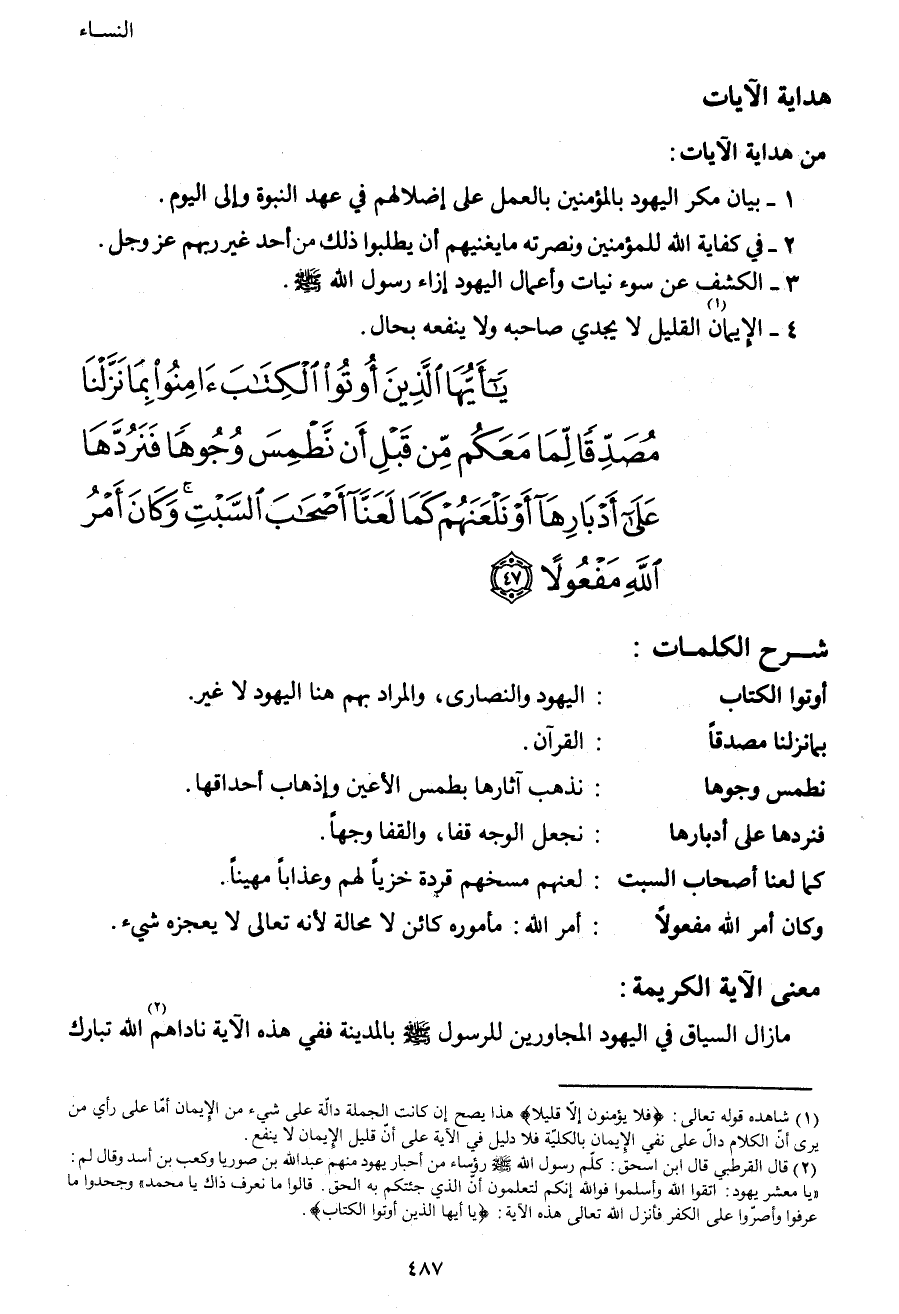 النساء
هداية الآيات
من هداية الآيات :
١ ـ بيان مكر اليهود بالمؤمنين بالعمل على إضلالهم في عهد النبوة وإلى اليوم .
٢ ـ في كفاية الله للمؤمنين ونصرته مايغنيهم أن يطلبوا ذلك من أحد غير ربهم عز وجل .
٣ ـ الكشف عن سوء نيات وأعمال اليهود إزاء رسول الله ﷺ .
٤ ـ الإيمان(١) القليل لا يجدي صاحبه ولا ينفعه بحال .
يَٰٓأَيُّهَا ٱلَّذِينَ أُوتُوا۟ ٱلْكِتَٰبَ ءَامِنُوا۟ بِمَا نَزَّلْنَا
مُصَدِّقًا لِّمَا مَعَكُم مِّن قَبْلِ أَن نَّطْمِسَ وُجُوهًا فَنَرُدَّهَا
عَلَىٰٓ أَدْبَارِهَآ أَوْ نَلْعَنَهُمْ كَمَا لَعَنَّآ أَصْحَٰبَ ٱلسَّبْتِ ۚ وَكَانَ أَمْرُ
ٱللَّهِ مَفْعُولًا ٤٧
شـرح الكلمـات :
أوتوا الكتاب : اليهود والنصارى، والمراد بهم هنا اليهود لا غير.
بمانزلنا مصدقاً : القرآن .
نطمس وجوها : نذهب آثارها بطمس الأعين وإذهاب أحداقها .
فنردها على أدبارها : نجعل الوجه قفا، والقفا وجهاً .
كما لعنا أصحاب السبت : لعنهم مسخهم قردة خزياً لهم وعذاباً مهيناً .
وكان أمر الله مفعولاً : أمر الله : مأموره كائن لا محالة لأنه تعالى لا يعجزه شيء .
معنى الآية الكريمة :
مازال السياق في اليهود المجاورين للرسول ﷺ بالمدينة ففي هذه الآية ناداهم(٢) الله تبارك
(١) شاهده قوله تعالى : ﴿فلا يؤمنون إلّا قليلا﴾ هذا يصح إن كانت الجملة دالّة على شيء من الإيمان أمّا على رأي من
يرى أنّ الكلام دالّ على نفي الإيمان بالكليّة فلا دليل في الآية على أنّ قليل الإيمان لا ينفع .
(٢) قال القرطبي قال ابن اسحق : كلّم رسول الله ﷺ رؤساء من أحبار يهود منهم عبدالله بن صوريا وكعب بن أسد وقال لم :
«يا معشر يهود : اتقوا الله وأسلموا فوالله إنكم لتعلمون أنّ الذي جئتكم به الحق . قالوا ما نعرف ذاك يا محمد» وجحدوا ما
عرفوا وأصرّوا على الكفر فأنزل الله تعالى هذه الآية : ﴿يا أيها الذين أوتوا الكتاب﴾ .
٤٨٧